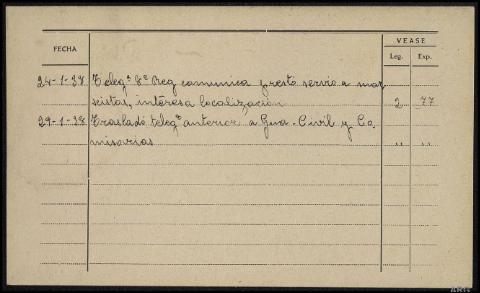 VEASE
FECHA
Leg. Exp.
24-1-38 Telegª comunica presto servio a mar
xistas, interesa localización 2 77
29-1-38 Traslado telegª anterior a Gua. Civil y Co
misarias " "